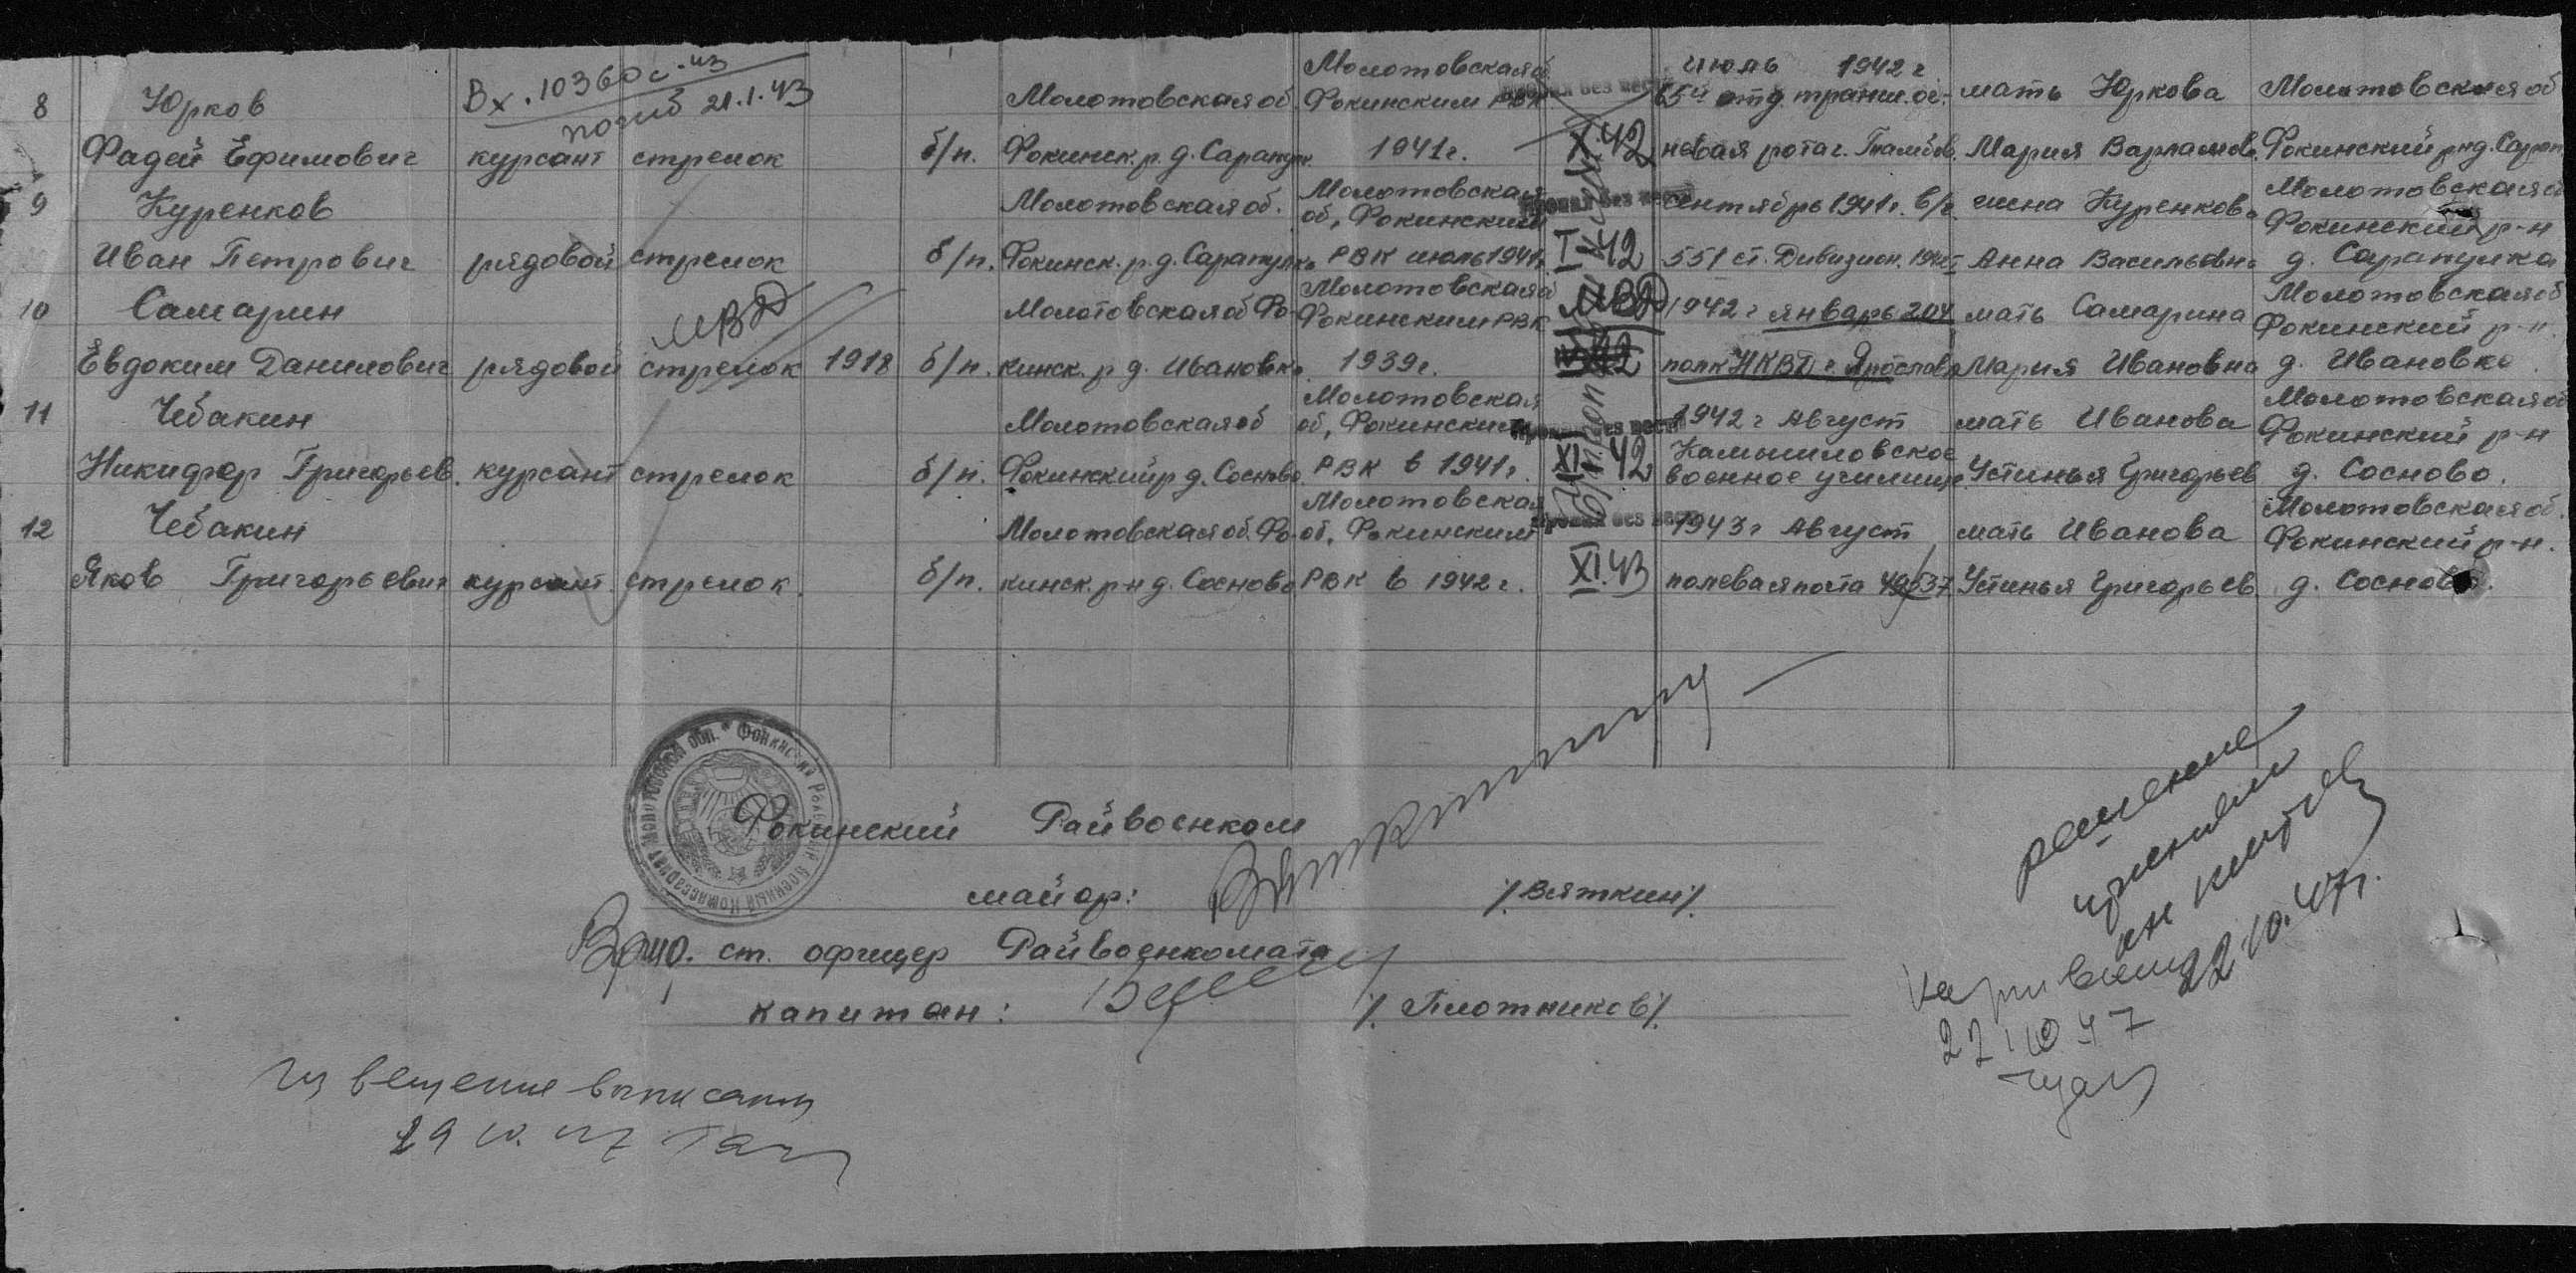 8 Юрков Вх. 10360с-43 Молотовская об Молотовская об Фокинским РВК пропал без вести июль 1942 г 65й отд. транш. ог- мать Юркова Молотовская об
погиб 21.1.43
Фадей Ефимович курсант стрелок б/п. Фокинск. р. д. Сарапулк. 1941 г. X.42 невая рота г. Тамбов. Мария Варламов. Фокинский р-н д. Сарап.
9 Куренков Молотовская об. Молотовская об, Фокинским пропал без вести сентябрь 1941 г. в/ч жена Куренкова Молотовская об Фокинский р-н
Иван Петрович рядовой стрелок б/п. Фокинск. р. д. Сарапулка РВК июль 1941 г. I-42 551 ст. Дивизион. Анна Васильевна д. Сарапулка
10 Самарин МВД Молотовская об Фо- Молотовская об Фокинским РВК МВД 1942 г январь 204 мать Самарина Молотовская об Фокинский р-н.
Евдоким Данилович рядовой стрелок 1918 б/п. кинск. р д. Ивановка 1939 г. полк НКВД г. Ярославль Мария Ивановна д. Ивановка
11 Чебакин Молотовская об Молотовская об, Фокинским пропал без вести 1942 г Август мать Иванова Молотовская об Фокинский р-н
Никифор Григорьев. курсант стрелок б/п. Фокинский р д. Сосново РВК в 1941 г. XI 42 Камышловское военное училище Устинья Григорьев д. Сосново.
12 Чебакин Молотовская об. Фо- Молотовская об, Фокинским пропал без вести 1943 г Август мать Иванова Молотовская об. Фокинский р-н.
Яков Григорьевич курсант стрелок б/п. кинск. р-н д. Сосново РВК в 1942 г. XI.43 полевая почта 49537 Устинья Григорьев д. Сосново.
Фокинский Районный Военный Комиссариат Молотовской обл.
Фокинский Райвоенком
майор: /. Вяткин/.
Врио. ст. офицер Райвоенкомата
капитан: /. Плотников/.
решение
22.10.47г.
27.10.47
извещение выписаны
29 10.47